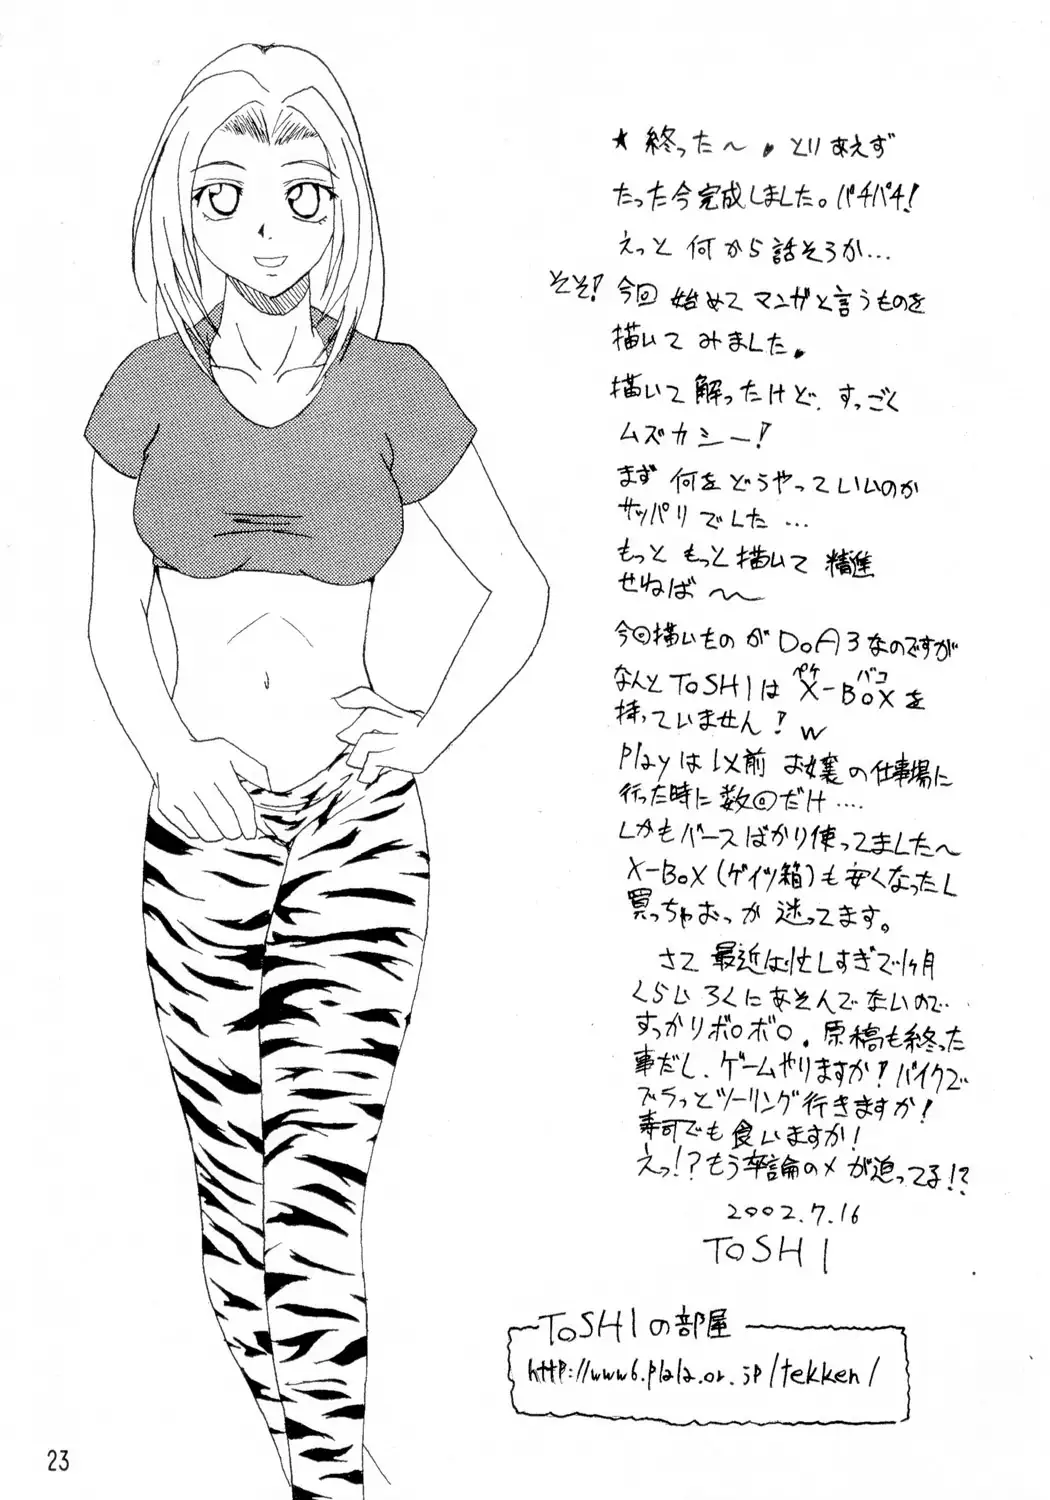 ★ 終った〜。とりあえず
たった今完成しました。パチパチ!
えっと 何から話そうか…
そそ! 今回 始めて マンガと言うものを
描いて みました。
描いて 解ったけど、すっごく
ムズカシー!
まず 何を どうやって いいのか
サッパリでした…
もっと もっと描いて 精進
せねば〜
今回描いたものが DoA3なのですが
なんと TOSHIは X-BOXを
ペケ バコ
持っていません! w
Playは以前 お嬢の仕事場に
行った時に数回だけ….
しかもバースばかり使ってました〜
X-BOX(ゲイツ箱)も安くなったし
買っちゃおっか 迷ってます。
さて 最近は忙しすぎで1ヶ月
くらい ろくにあそんでないので
すっかりボロボロ。原稿も終った
事だし、ゲームやりますか!バイクで
ブラっとツーリング行きますか!
寿司でも食いますか!
えっ!?もう卒論の〆が迫ってる!?
2002.7.16
TOSHI
TOSHIの部屋
http://www6.plala.or.jp/tekken/
23